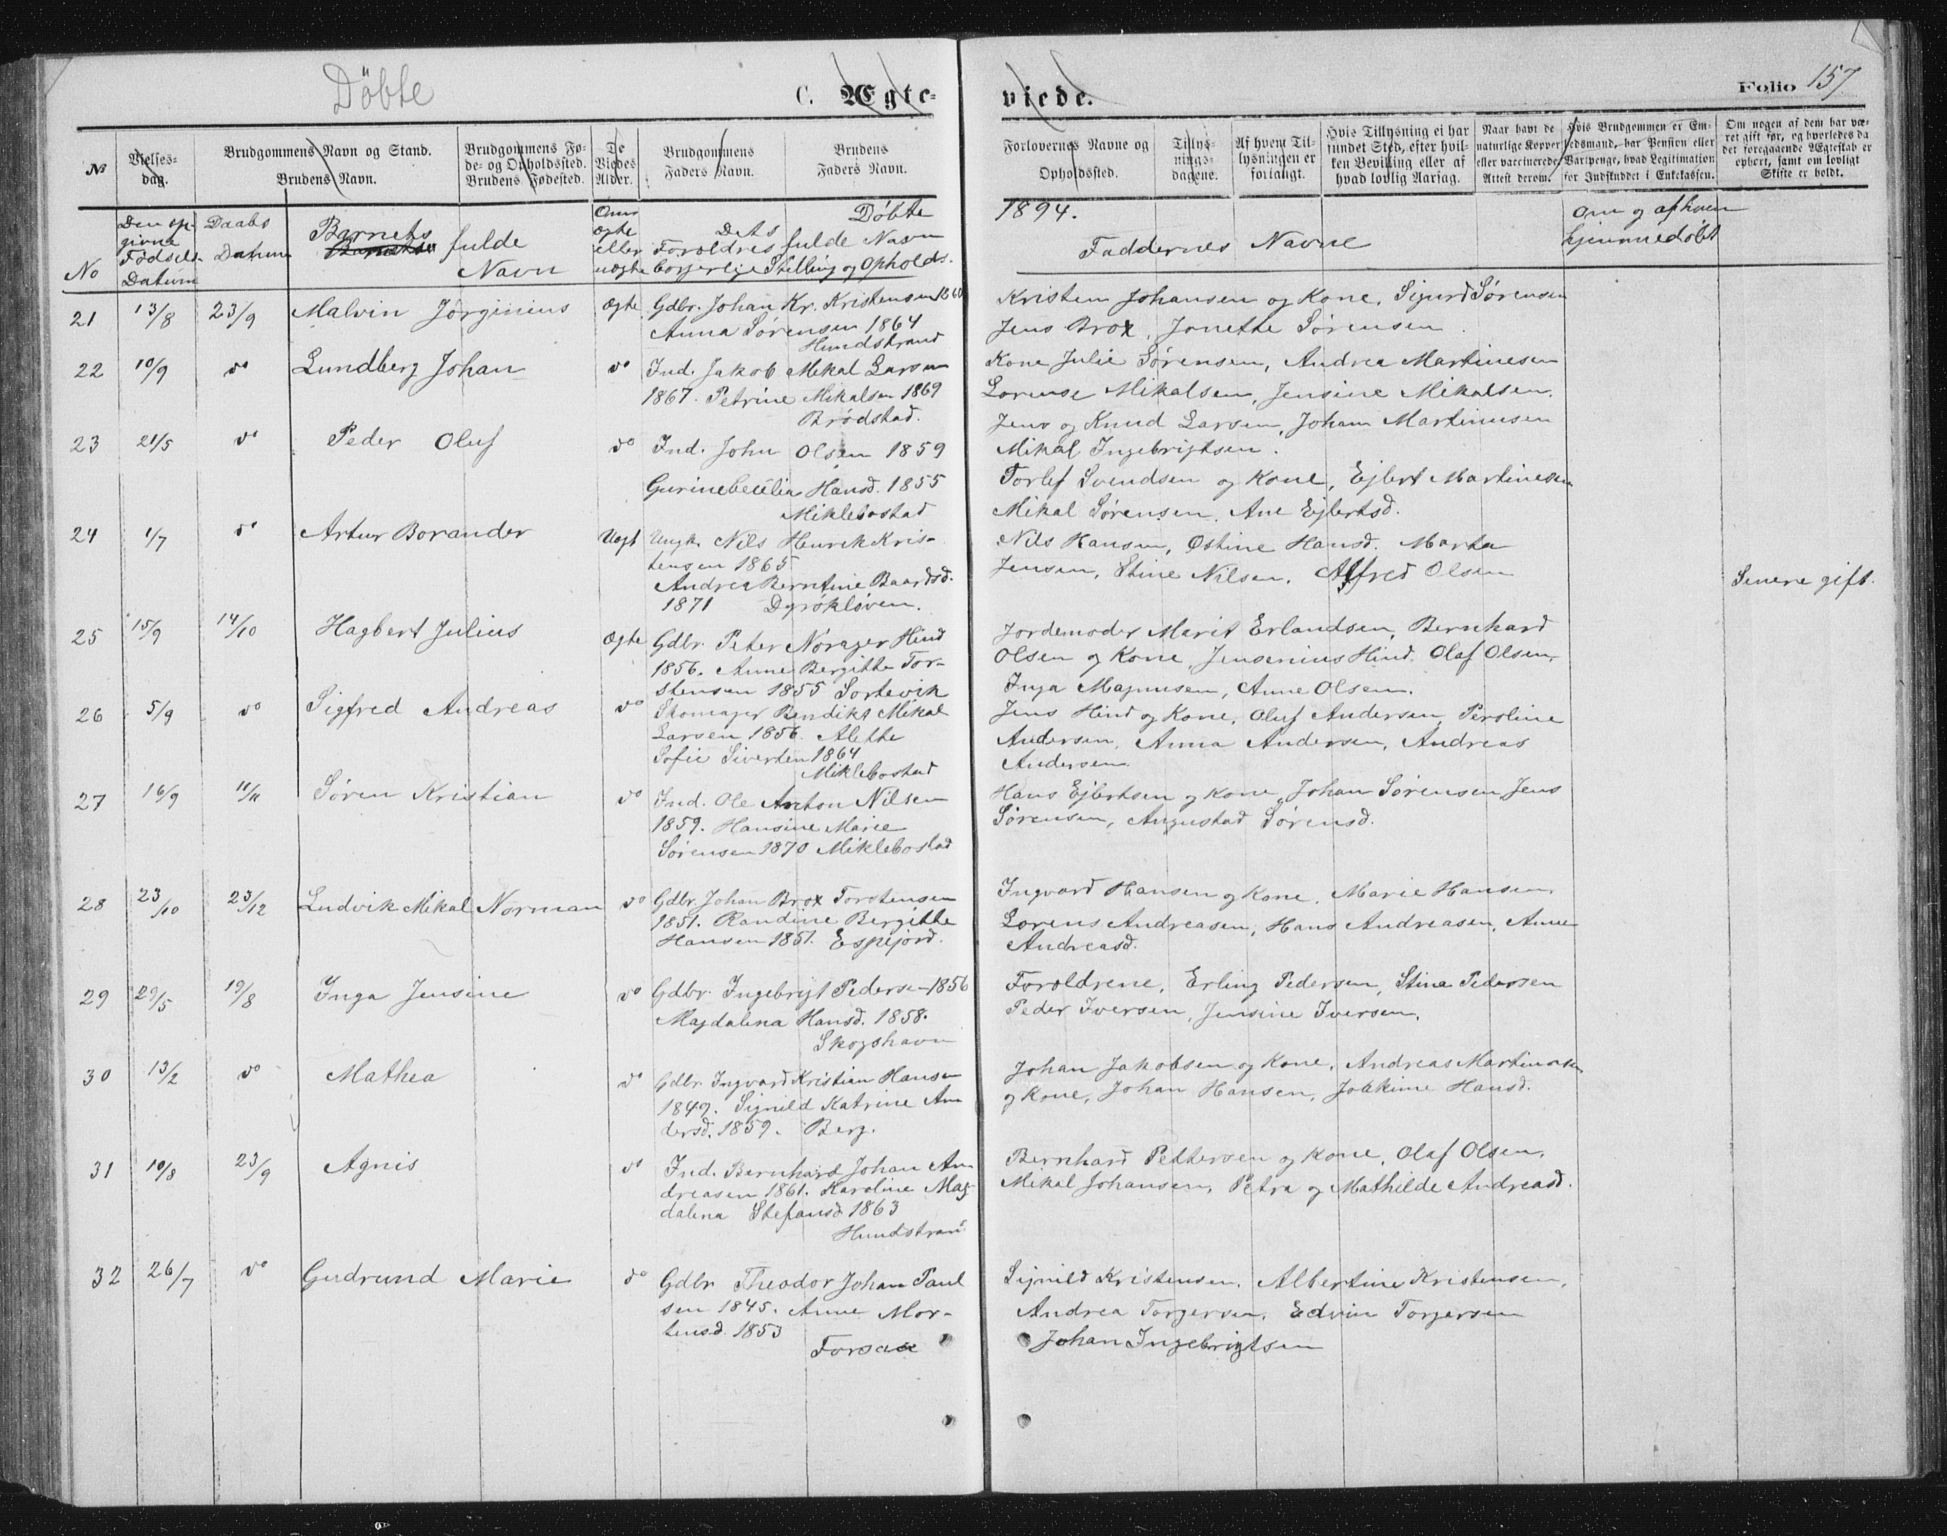 Döbte
C. Ægte-
viede.
Folio 157
No
Vielses-
dag.
Brudgommens Navn og Stand.
Brudens Navn.
Brudgommens Fø-
de- og Opholdssted.
Brudens Fødested.
De
Viedes
Alder.
Brudgommens
Faders Navn.
Brudens
Faders Navn.
Forlovernes Navne og
Opholdssted.
Tillys-
nings-
dagene.
Af hvem Til-
lysningen er
forlangt.
Hvis Tillysning ei har
fundet Sted, efter hvil-
ken Bevilling eller af
hvad lovlig Aarsag.
Naar havt de
naturlige Kopper
eller vaccinerede.
Attest derom.
Hvis Brudgommen er Em-
bedsmand, har Pension eller
Vartpenge, hvad Legitimation
for Indskuddet i Enkekassen.
Om nogen af dem har væ-
ret gift før, og hvorledes da
det foregaaende Ægteskab er
ophørt, samt om lovligt
Skifte er holdt.
No
Den op
givne
Födsels
Datum
Daabs
Datum
Barnets fulde
Navn
Om
ægte
eller
uægte
Döbte
Dets
Foroldres fulde Navn
borgerlige Stilling og Opholds.
1894.
Faddernes Navne
om og af hvem
hjemmedøbt
21 13/8 23/9 Malvin Jörginius Ægte Gdbr. Johan Kr. Kristensen 1860
Anna Sørensen 1864
Hundstrand
Kristen Johansen og Kone, Sigurd Sørensen
Jens Brox, Jonette Sörensen.
22 10/9 do Lundberg Johan do Ind. Jakob Mikal Larsen
1867. Petrine Mikalsen 1869
Brødstad.
Kone Julie Sørensen, Andrea Martinesen
Lorense Mikalsen, Jensine Mikalsen.
Jens og Knud Larsen, Johan Martinusen
23 21/5 do Peder Oluf do Ind. John Olsen 1859
Gurine Cecilia Hansd. 1855
Miklebostad
Mikal Ingebrigtsen.
Torlef Svendsen og Kone, Ejlert Martinesen
Mikal Sørensen, Ane Ejlertsd.
24 1/7 do Artur Borander Uægt Ungk. Nils Henrik Kris-
tensen 1865
Andrea Berntine Baardsd.
1871 Dyröklöven.
Nils Hansen, Østine Hansd. Marta
Jensen, Stine Nilsen, Alfred Olsen
Senere gift.
25 15/9 14/10 Hagbert Julius Ægte Gdbr. Peter Norager Hind
1856. Anne Bergitte Tor-
stensen 1855 Sortevik
Jordemoder Marit Erlandsen, Bernhard
Olsen og Kone, Jensenius Hind. Olaf Olsen,
Inga Magnusen, Anne Olsen.
26 5/9 do Sigfred Andreas do Skomager Bendikt Mikal
Larsen 1856. Alette
Sofie Sivertsen 1864
Miklebostad
Jens Hind og Kone, Oluf Andersen, Peroline
Andersen, Anna Andersen, Andreas
Andersen.
27 16/9 11/11 Søren Kristian do Ind. Ole Anton Nilsen
1859. Hansine Marie
Sörensen 1870 Miklebostad
Hans Ejlertsen og Kone, Johan Sørensen, Jens
Sörensen, Augustad Sørensd.
28 23/10 23/12 Ludvik Mikal Norman do Gdbr. Johan Brox Torstensen
1851. Randine Bergitte
Hansen 1851. Espejord.
Ingvard Hansen og Kone, Marie Hansen,
Lorens Andreasen, Hans Andreasen, Anne
Andreasd.
29 29/5 19/8 Inga Jensine do Gdbr. Ingebrigt Pedersen 1856
Magdalena Hansd. 1858.
Skogshavn
Foroldrene, Erling Pedersen, Stina Pedersen
Peder Iversen, Jensine Iversen,
30 13/2 do Mathea do Gdbr. Ingvard Kristian Hansen
1849. Signild Katrine An
dersd. 1859. Berg.
Johan Jakobsen og Kone, Andreas Martinusen
og Kone, Johan Hansen, Joakime Hansd.
31 10/8 23/9 Agnis do Ind. Bernhard Johan An-
dreasen 1861. Karoline Mag-
dalena Stefansd 1863
Hundstrand
Bernhard Pettersen og Kone, Olaf Olsen,
Mikal Johansen, Petra og Mathilde Andreasd.
32 26/7 do Gudrund Marie do Gdbr Theodor Johan Paul
sen 1845. Anne Mor-
tensd. 1853
Forsaa
Signild Kristensen, Albertine Kristensen,
Andrea Torgersen, Edvin Torgersen
Johan Ingebrigtsen